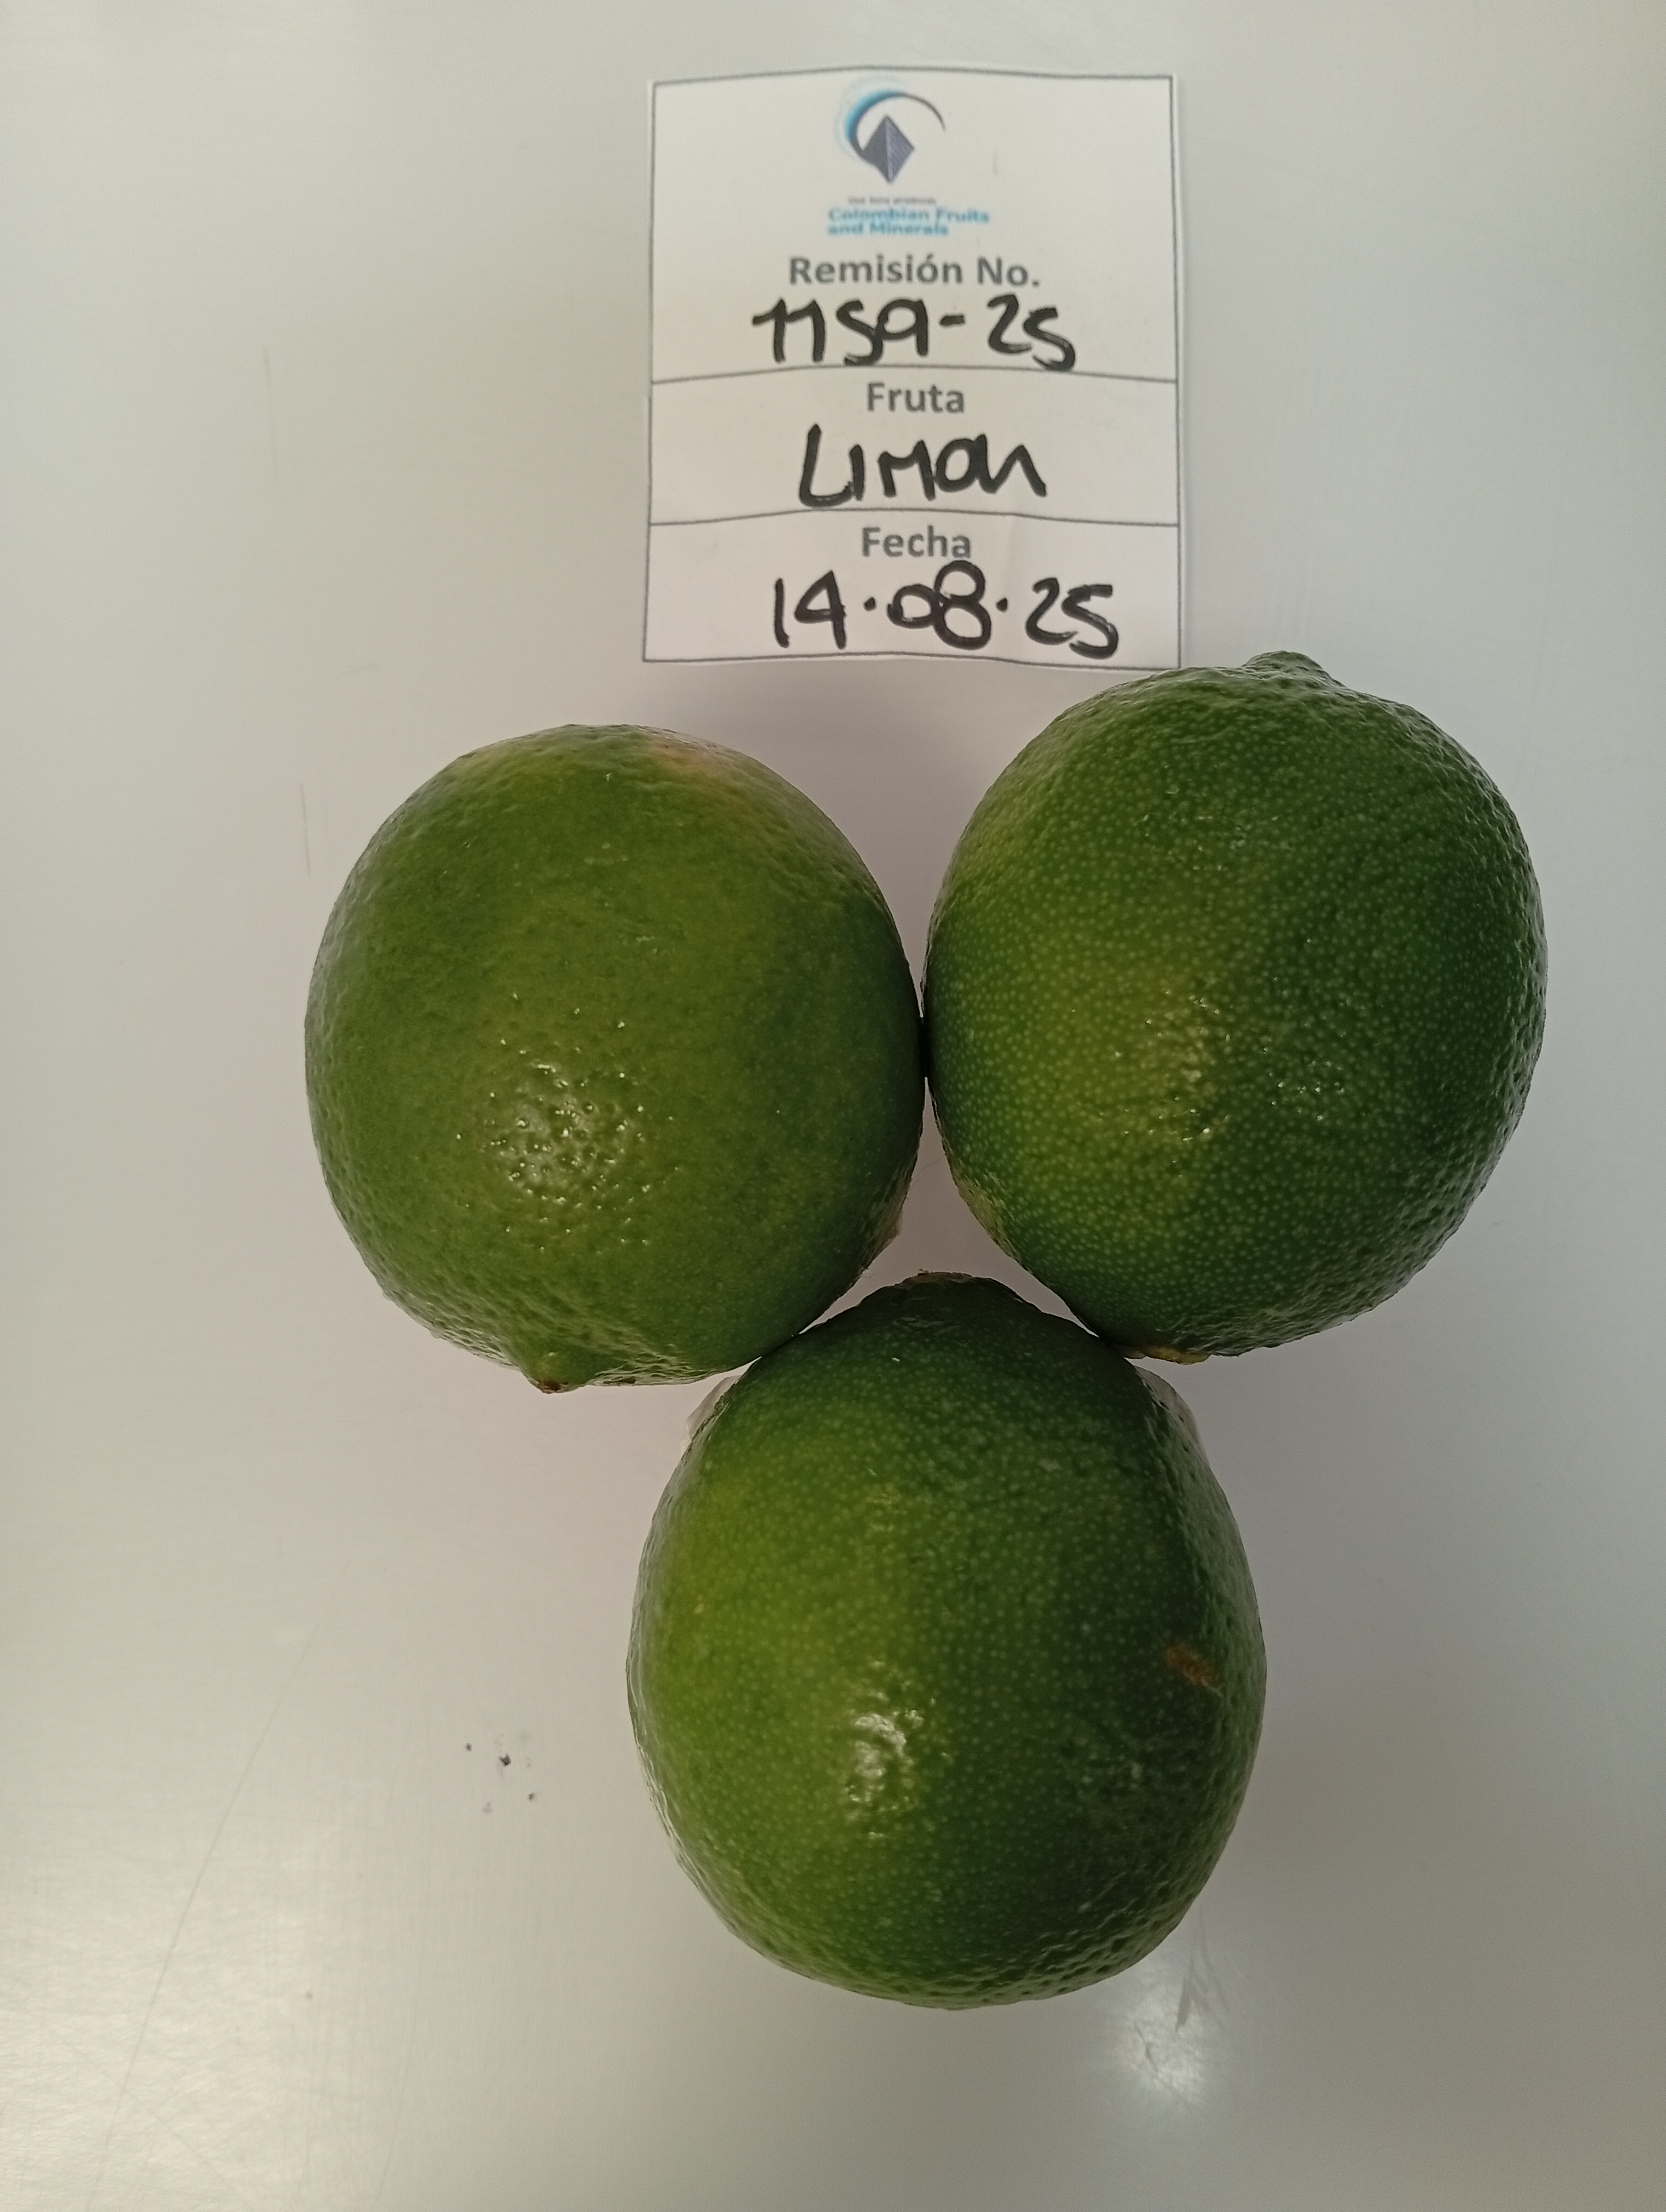 Colombian Fruits
and Minerals
Remisión No.
1159-25
Fruta
LIMON
Fecha
14.08.25